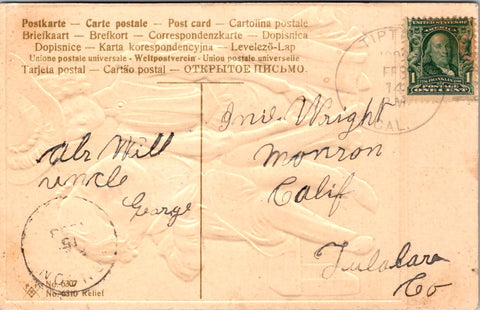 Postkarte - Carte postale - Post card - Cartolina postale
Briefkaart - Brefkort - Correspondenzkarte - Dopisnica
Dopisnice - Karta korespondencyjna - Levelező-Lap
Unione postale universale - Weltpostverein - Union postale universelle
Tarjeta postal - Cartão postal - ОТКРЫТОЕ ПИСЬМО.
UNITED STATES OF AMERICA
FRANKLIN
1 POSTAGE 1
ONE CENT
TIPTON
FEB
14
M
CAL.
Wright
Monron
Calif
Tulalare
Co
Will
uncle
George
15
No. 6307
No. 6310 Relief